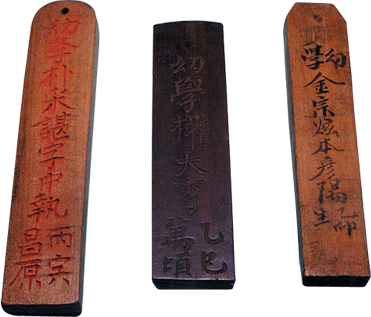 幼學朴永諶字中執
丙寅
昌原
幼學權大
乙巳
萬頃
幼學金宗炫本彦陽
乙卯
生